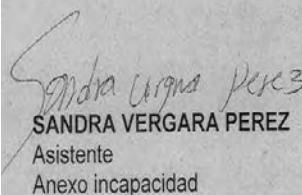 Sandra Vergara Perez
SANDRA VERGARA PEREZ
Asistente
Anexo incapacidad